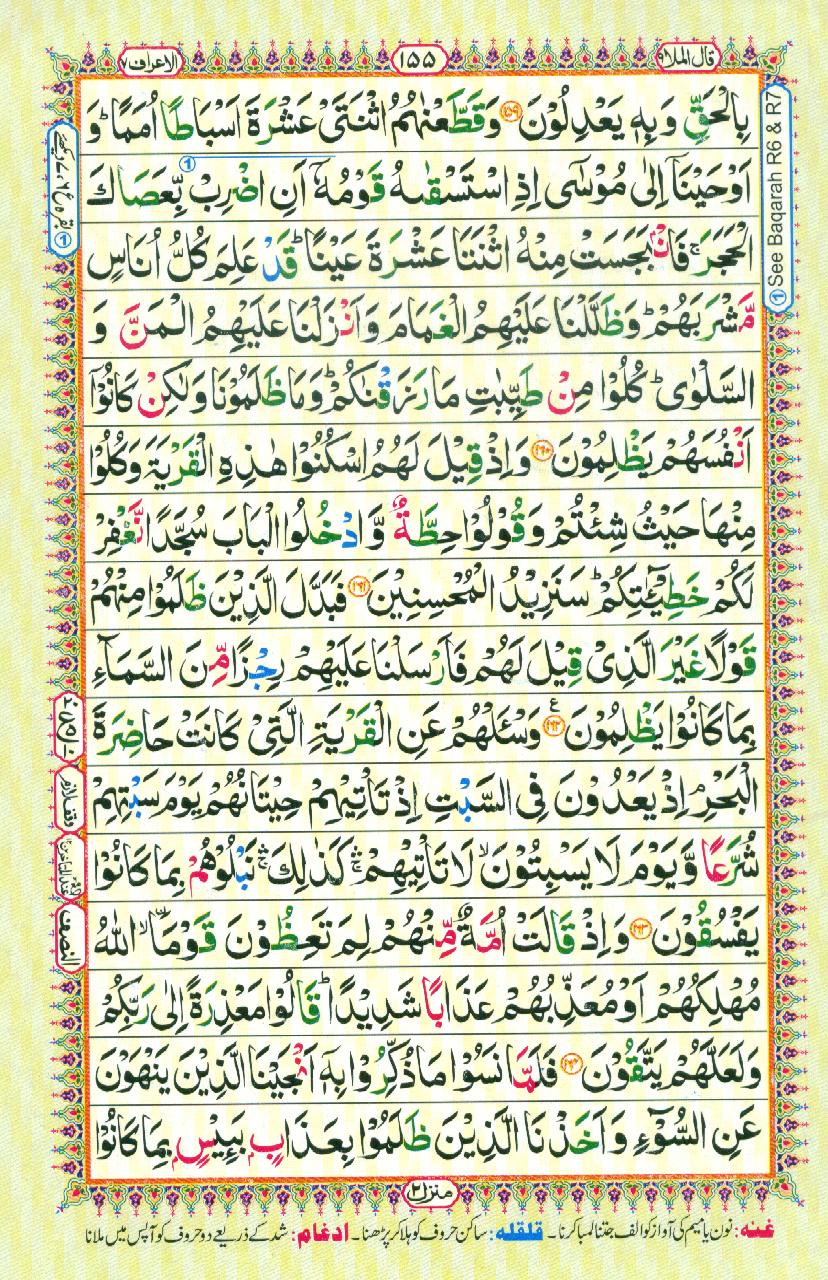 قال الملا ٩
١٥٥
الاعراف ٧
بِالْحَقِّ وَبِهٖ يَعْدِلُوْنَ ﴿١٥٩﴾ وَقَطَّعْنٰهُمُ اثْنَتَيْ عَشْرَةَ اَسْبَاطًا اُمَمًا ؕ وَ
اَوْحَيْنَاۤ اِلٰى مُوْسٰۤى اِذِ اسْتَسْقٰىهُ قَوْمُهٗۤ اَنِ اضْرِبْ بِّعَصَاكَ
الْحَجَرَ ۚ فَانْۢبَجَسَتْ مِنْهُ اثْنَتَا عَشْرَةَ عَيْنًا ؕ قَدْ عَلِمَ كُلُّ اُنَاسٍ
مَّشْرَبَهُمْ ؕ وَظَلَّلْنَا عَلَيْهِمُ الْغَمَامَ وَاَنْزَلْنَا عَلَيْهِمُ الْمَنَّ وَ
السَّلْوٰى ؕ كُلُوْا مِنْ طَيِّبٰتِ مَا رَزَقْنٰكُمْ ؕ وَمَا ظَلَمُوْنَا وَلٰكِنْ كَانُوْۤا
اَنْفُسَهُمْ يَظْلِمُوْنَ ﴿١٦٠﴾ وَاِذْ قِيْلَ لَهُمُ اسْكُنُوْا هٰذِهِ الْقَرْيَةَ وَكُلُوْا
مِنْهَا حَيْثُ شِئْتُمْ وَقُوْلُوْا حِطَّةٌ وَّادْخُلُوا الْبَابَ سُجَّدًا نَّغْفِرْ
لَكُمْ خَطِيْٓـٰٔتِكُمْ ؕ سَنَزِيْدُ الْمُحْسِنِيْنَ ﴿١٦١﴾ فَبَدَّلَ الَّذِيْنَ ظَلَمُوْا مِنْهُمْ
قَوْلًا غَيْرَ الَّذِيْ قِيْلَ لَهُمْ فَاَرْسَلْنَا عَلَيْهِمْ رِجْزًا مِّنَ السَّمَآءِ
بِمَا كَانُوْا يَظْلِمُوْنَ ﴿١٦٢﴾ ع وَسْئَلْهُمْ عَنِ الْقَرْيَةِ الَّتِيْ كَانَتْ حَاضِرَةَ
الْبَحْرِ ۘ اِذْ يَعْدُوْنَ فِي السَّبْتِ اِذْ تَاْتِيْهِمْ حِيْتَانُهُمْ يَوْمَ سَبْتِهِمْ
شُرَّعًا وَّيَوْمَ لَا يَسْبِتُوْنَ ۙ لَا تَاْتِيْهِمْ ۛۚ كَذٰلِكَ ۛۚ نَبْلُوْهُمْ بِمَا كَانُوْا
يَفْسُقُوْنَ ﴿١٦٣﴾ وَاِذْ قَالَتْ اُمَّةٌ مِّنْهُمْ لِمَ تَعِظُوْنَ قَوْمَا ۙ اللّٰهُ
مُهْلِكُهُمْ اَوْ مُعَذِّبُهُمْ عَذَابًا شَدِيْدًا ؕ قَالُوْا مَعْذِرَةً اِلٰى رَبِّكُمْ
وَلَعَلَّهُمْ يَتَّقُوْنَ ﴿١٦٤﴾ فَلَمَّا نَسُوْا مَا ذُكِّرُوْا بِهٖۤ اَنْجَيْنَا الَّذِيْنَ يَنْهَوْنَ
عَنِ السُّوْٓءِ وَاَخَذْنَا الَّذِيْنَ ظَلَمُوْا بِعَذَابٍۭ بَئِيْسٍۭ بِمَا كَانُوْا
① See Baqarah R6 & R7
النصف
منزل ٢
غنہ: نون یا میم کی آواز کو الف جتنا لمبا کرنا۔ قلقلہ: ساکن حروف کو ہلا کر پڑھنا۔ ادغام: شد کے ذریعے دو حروف کو آپس میں ملانا